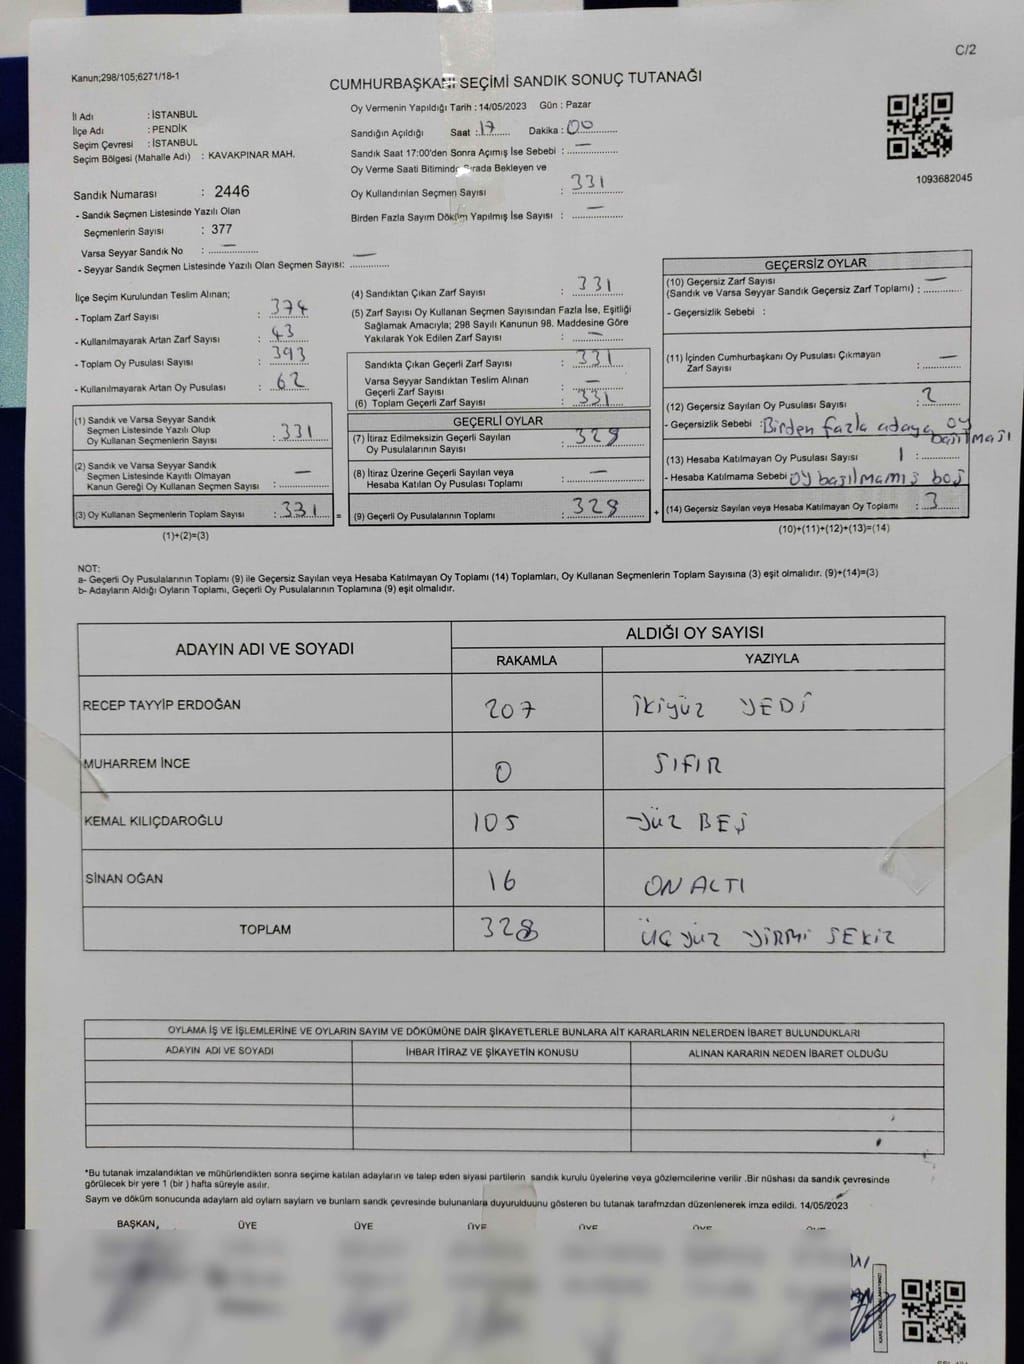 C/2
Kanun;298/105;6271/18-1
CUMHURBAŞKANI SEÇİMİ SANDIK SONUÇ TUTANAĞI
İl Adı : İSTANBUL
İlçe Adı : PENDİK
Seçim Çevresi : İSTANBUL
Seçim Bölgesi (Mahalle Adı) : KAVAKPINAR MAH.
Sandık Numarası : 2446
- Sandık Seçmen Listesinde Yazılı Olan
Seçmenlerin Sayısı : 377
Varsa Seyyar Sandık No : —
- Seyyar Sandık Seçmen Listesinde Yazılı Olan Seçmen Sayısı: —
Oy Vermenin Yapıldığı Tarih : 14/05/2023 Gün : Pazar
Sandığın Açıldığı Saat : 17 Dakika : 00
Sandık Saat 17:00'den Sonra Açımış İse Sebebi : —
Oy Verme Saati Bitiminde Sırada Bekleyen ve
Oy Kullandırılan Seçmen Sayısı : 331
Birden Fazla Sayım Döküm Yapılmış İse Sayısı : —
1093682045
İlçe Seçim Kurulundan Teslim Alınan;
- Toplam Zarf Sayısı : 374
- Kullanılmayarak Artan Zarf Sayısı : 43
- Toplam Oy Pusulası Sayısı : 393
- Kullanılmayarak Artan Oy Pusulası : 62
(1) Sandık ve Varsa Seyyar Sandık
Seçmen Listesinde Yazılı Olup
Oy Kullanan Seçmenlerin Sayısı : 331
(2) Sandık ve Varsa Seyyar Sandık
Seçmen Listesinde Kayıtlı Olmayan
Kanun Gereği Oy Kullanan Seçmen Sayısı : —
(3) Oy Kullanan Seçmenlerin Toplam Sayısı : 331 =
(1)+(2)=(3)
(4) Sandıktan Çıkan Zarf Sayısı : 331
(5) Zarf Sayısı Oy Kullanan Seçmen Sayısından Fazla İse, Eşitliği
Sağlamak Amacıyla; 298 Sayılı Kanunun 98. Maddesine Göre
Yakılarak Yok Edilen Zarf Sayısı : —
Sandıkta Çıkan Geçerli Zarf Sayısı : 331
Varsa Seyyar Sandıktan Teslim Alınan
Geçerli Zarf Sayısı : —
(6) Toplam Geçerli Zarf Sayısı : 331
GEÇERLİ OYLAR
(7) İtiraz Edilmeksizin Geçerli Sayılan
Oy Pusulalarının Sayısı : 328
(8) İtiraz Üzerine Geçerli Sayılan veya
Hesaba Katılan Oy Pusulası Toplamı : —
(9) Geçerli Oy Pusulalarının Toplamı : 328 +
GEÇERSİZ OYLAR
(10) Geçersiz Zarf Sayısı
(Sandık ve Varsa Seyyar Sandık Geçersiz Zarf Toplamı) : —
- Geçersizlik Sebebi :
(11) İçinden Cumhurbaşkanı Oy Pusulası Çıkmayan
Zarf Sayısı : —
(12) Geçersiz Sayılan Oy Pusulası Sayısı : 2
- Geçersizlik Sebebi : Birden fazla adaya oy
basılması
(13) Hesaba Katılmayan Oy Pusulası Sayısı 1 :
- Hesaba Katılmama Sebebi oy basılmamış boş
(14) Geçersiz Sayılan veya Hesaba Katılmayan Oy Toplamı : 3
(10)+(11)+(12)+(13)=(14)
NOT:
a- Geçerli Oy Pusulalarının Toplamı (9) ile Geçersiz Sayılan veya Hesaba Katılmayan Oy Toplamı (14) Toplamları, Oy Kullanan Seçmenlerin Toplam Sayısına (3) eşit olmalıdır. (9)+(14)=(3)
b- Adayların Aldığı Oyların Toplamı, Geçerli Oy Pusulalarının Toplamına (9) eşit olmalıdır.
ADAYIN ADI VE SOYADI
ALDIĞI OY SAYISI
RAKAMLA YAZIYLA
RECEP TAYYİP ERDOĞAN 207 İKİYÜZ YEDİ
MUHARREM İNCE 0 SIFIR
KEMAL KILIÇDAROĞLU 105 YÜZ BEŞ
SİNAN OĞAN 16 ON ALTI
TOPLAM 328 ÜÇ YÜZ YİRMİ SEKİZ
OYLAMA İŞ VE İŞLEMLERİNE VE OYLARIN SAYIM VE DÖKÜMÜNE DAİR ŞİKAYETLERLE BUNLARA AİT KARARLARIN NELERDEN İBARET BULUNDUKLARI
ADAYIN ADI VE SOYADI İHBAR İTİRAZ VE ŞİKAYETİN KONUSU ALINAN KARARIN NEDEN İBARET OLDUĞU
*Bu tutanak imzalandıktan ve mühürlendikten sonra seçime katılan adayların ve talep eden siyasi partilerin sandık kurulu üyelerine veya gözlemcilerine verilir .Bir nüshası da sandık çevresinde
görülecek bir yere 1 (bir ) hafta süreyle asılır.
Saym ve döküm sonucunda adaylarn ald oylarn saylarn ve bunlarn sandk çevresinde bulunanlara duyurulduunu gösteren bu tutanak tarafmzdan düzenlenerek imza edildi. 14/05/2023
BAŞKAN, ÜYE ÜYE ÜYE ÜYE ÜYE ÜYE